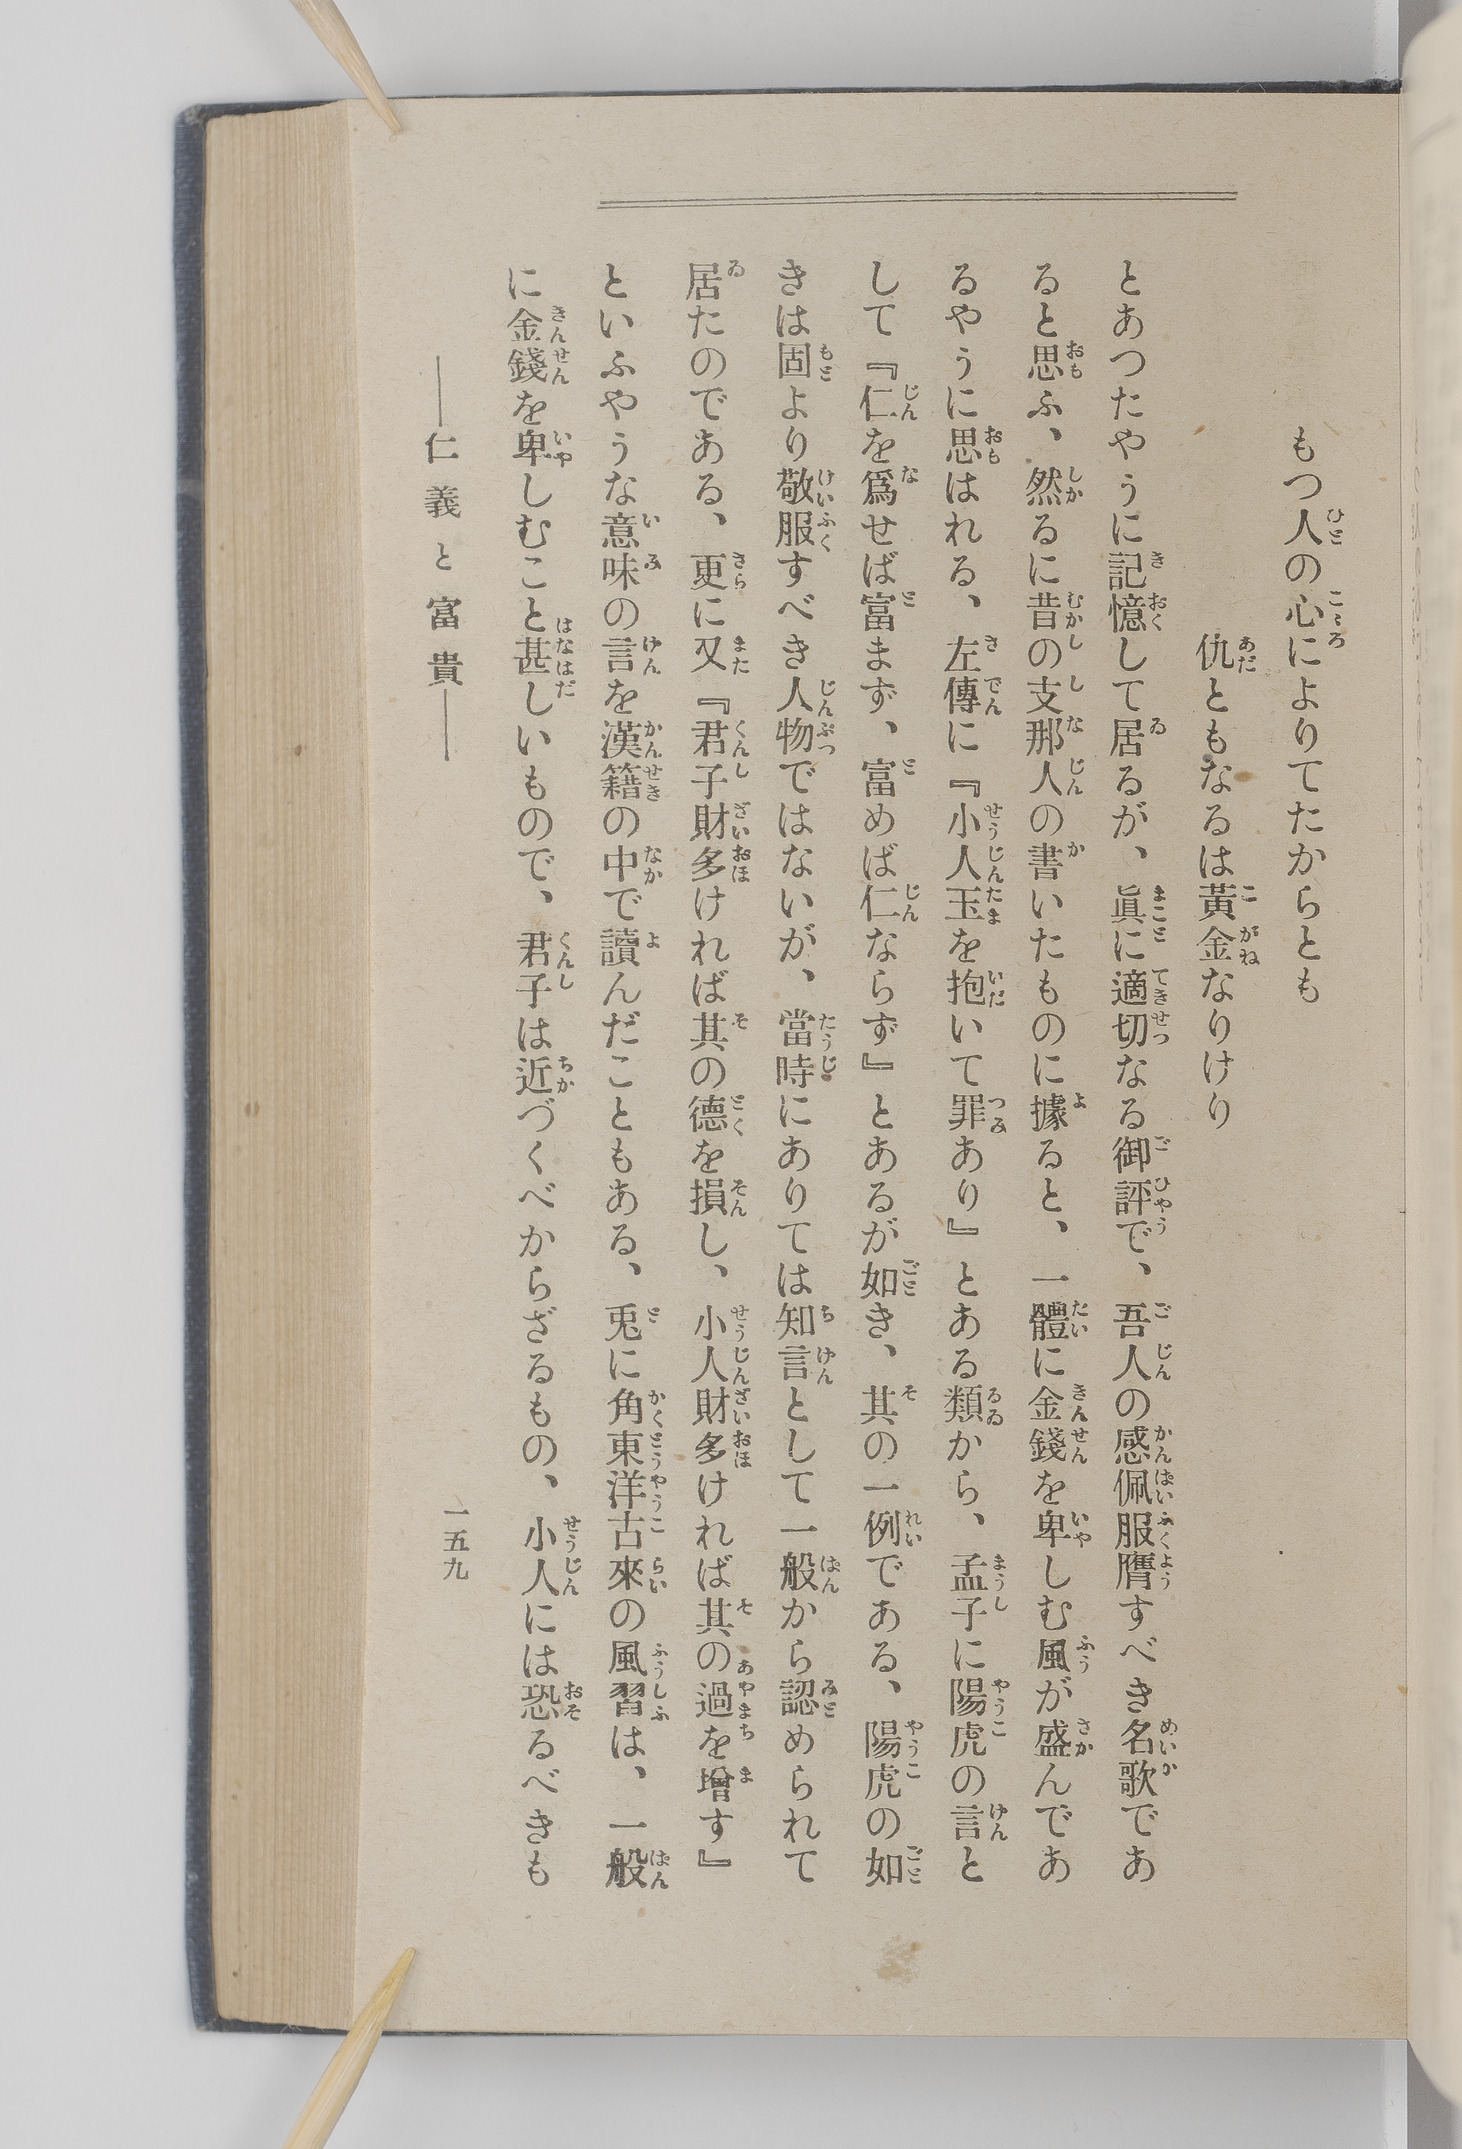 もつ人の心によりてたからとも
仇ともなるは黃金なりけり
とあつたやうに記憶して居るが、眞に適切なる御評で、吾人の感佩服膺すべき名歌であ
ると思ふ、然るに昔の支那人の書いたものに據ると、一體に金錢を卑しむ風が盛んであ
るやうに思はれる、左傳に『小人玉を抱いて罪あり』とある類から、孟子に陽虎の言と
して『仁を爲せば富まず、富めば仁ならず』とあるが如き、其の一例である、陽虎の如
きは固より敬服すべき人物ではないが、當時にありては知言として一般から認められて
居たのである、更に又『君子財多ければ其の德を損し、小人財多ければ其の過を增す』
といふやうな意味の言を漢籍の中で讀んだこともある、兎に角東洋古來の風習は、一般
に金錢を卑しむこと甚しいもので、君子は近づくべからざるもの、小人には恐るべきも
――仁義と富貴――
一五九